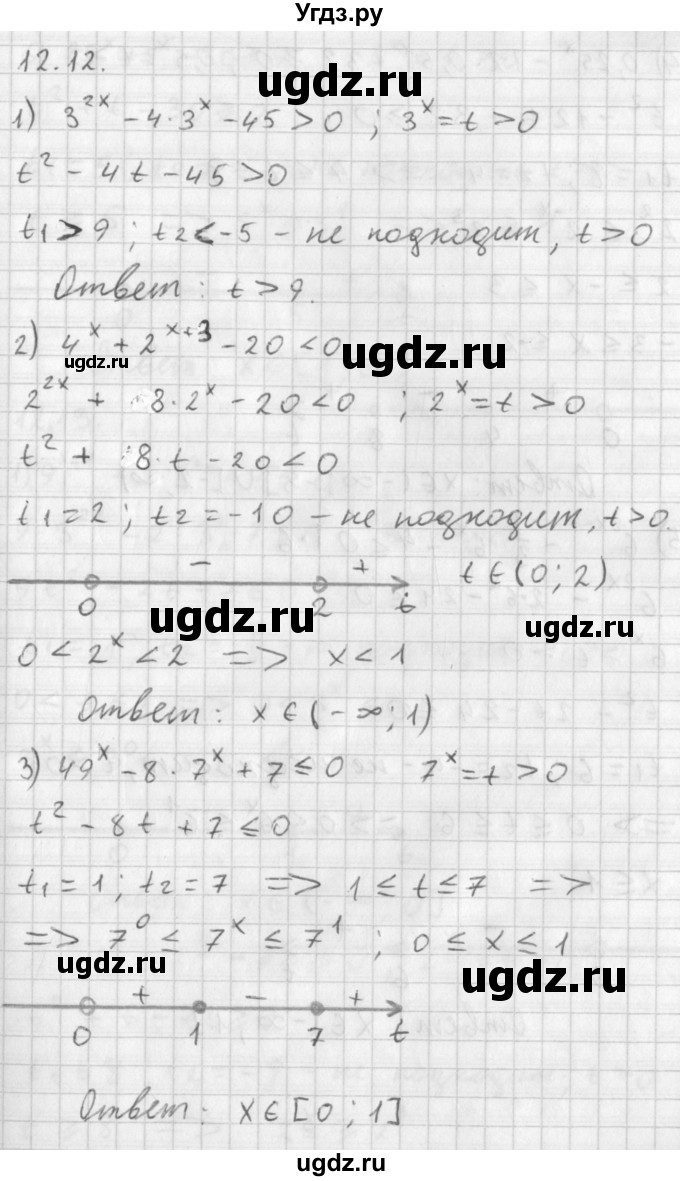 Угдз.ру
12.12.
ugdz.ru
1) 3^{2x} - 4·3^x - 45 > 0 ; 3^x = t > 0
t^2 - 4t - 45 > 0
t1 > 9 ; t2 < -5 - не подходит, t > 0
Ответ : t > 9.
2) 4^x + 2^{x+3} - 20 < 0
ugdz.ru
ugdz.ru
2^{2x} + 8·2^x - 20 < 0 ; 2^x = t > 0
t^2 + 8·t - 20 < 0
t1 = 2 ; t2 = -10 - не подходит, t > 0.
- + t ∈ (0 ; 2)
0 2 t
ugdz.ru
ugdz.ru
0 < 2^x < 2 => x < 1
Ответ : x ∈ (-∞; 1)
3) 49^x - 8·7^x + 7 ≤ 0 7^x = t > 0
t^2 - 8t + 7 ≤ 0
t1 = 1 ; t2 = 7 => 1 ≤ t ≤ 7 =>
=> 7^0 ≤ 7^x ≤ 7^1 ; 0 ≤ x ≤ 1
ugdz.ru
ugdz.ru
+ - +
0 1 7 t
Ответ : x ∈ [0 ; 1]
ugdz.ru